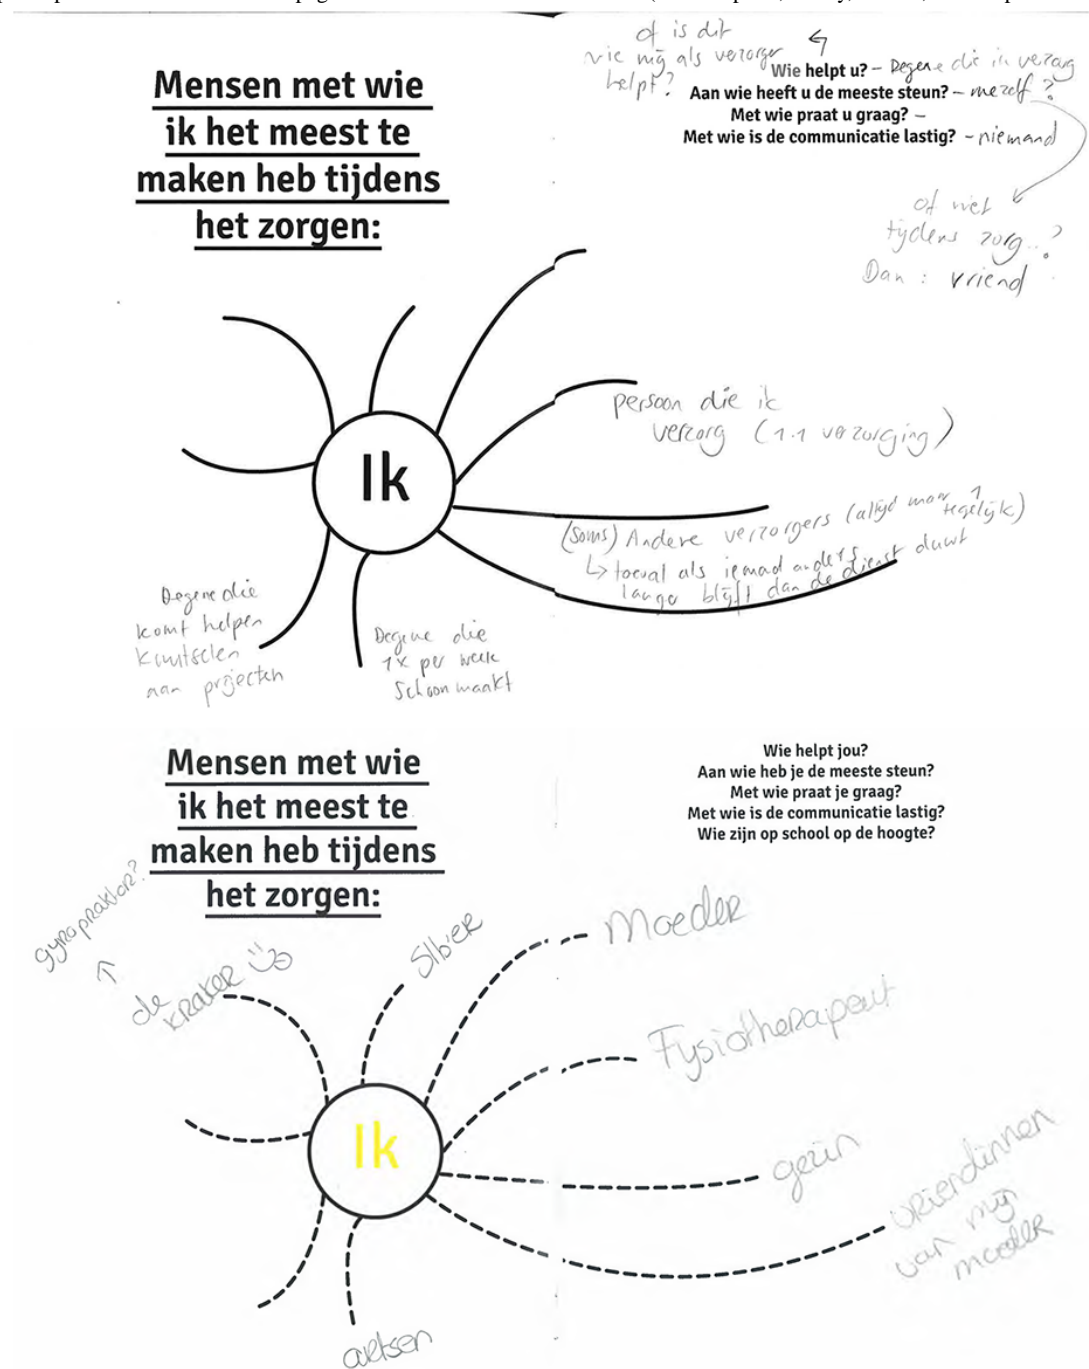 Mensen met wie
ik het meest te
maken heb tijdens
het zorgen:
of is dit
wie mij als verzorger
helpt?
Wie helpt u? – Degene die ik verzorg
Aan wie heeft u de meeste steun? – mezelf?
Met wie praat u graag? –
Met wie is de communicatie lastig? – niemand
of niet
tijdens zorg..?
Dan: vriend
Ik
persoon die ik
verzorg (1.1 verzorging)
(soms) Andere verzorgers (altijd maar 1
tegelijk)
↳ toeval als iemand anders
langer blijft dan de dienst duurt
Degene die
komt helpen
knutselen
aan projecten
Degene die
1x per week
schoonmaakt
Mensen met wie
ik het meest te
maken heb tijdens
het zorgen:
Wie helpt jou?
Aan wie heb je de meeste steun?
Met wie praat je graag?
Met wie is de communicatie lastig?
Wie zijn op school op de hoogte?
gyropraktor?
de
kraker
Moeder
Fysiotherapeut
Ik
gezin
vriendinnen
van mijn
moeder
artsen